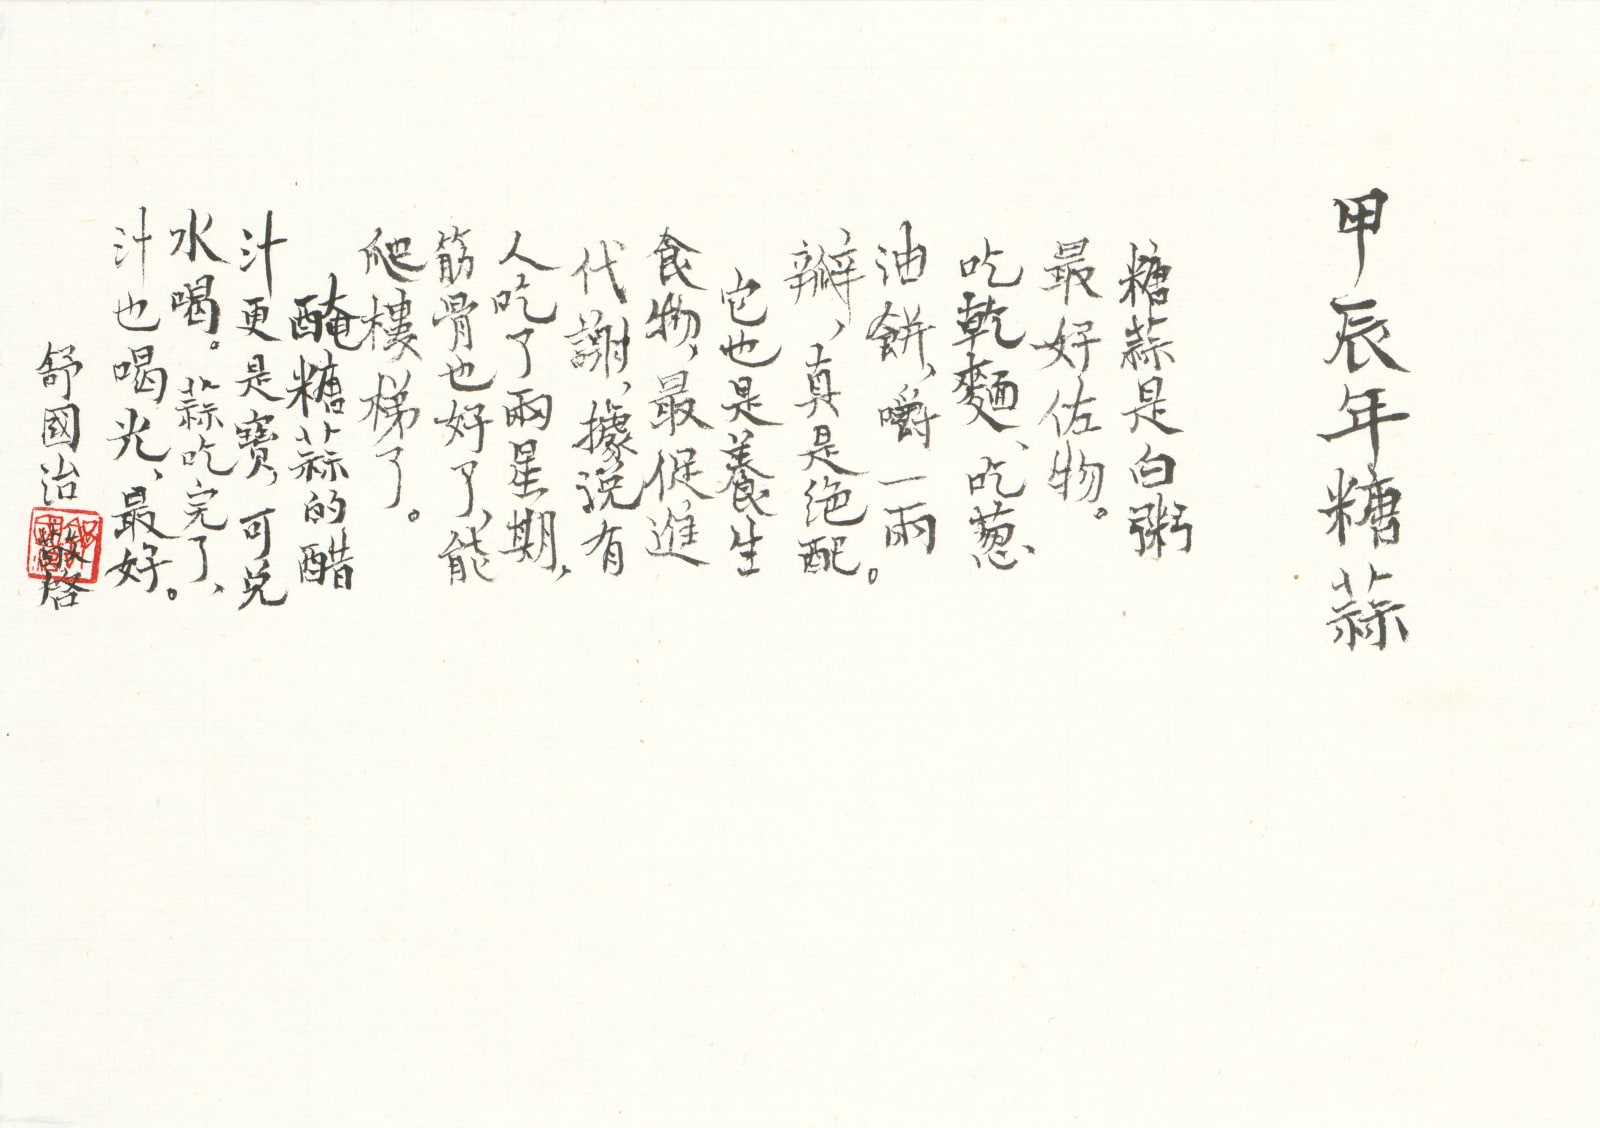 甲辰年糖蒜
糖蒜是白粥
最好佐物。
吃乾麵、吃葱
油餅，嚼一兩
瓣，真是绝配。
它也是養生
食物，最促進
代謝，據説有
人吃了兩星期，
筋骨也好了，能
爬樓梯了。
醃糖蒜的醋
汁更是寶，可兑
水喝。蒜吃完了、
汁也喝光、最好。
舒國治敬啓